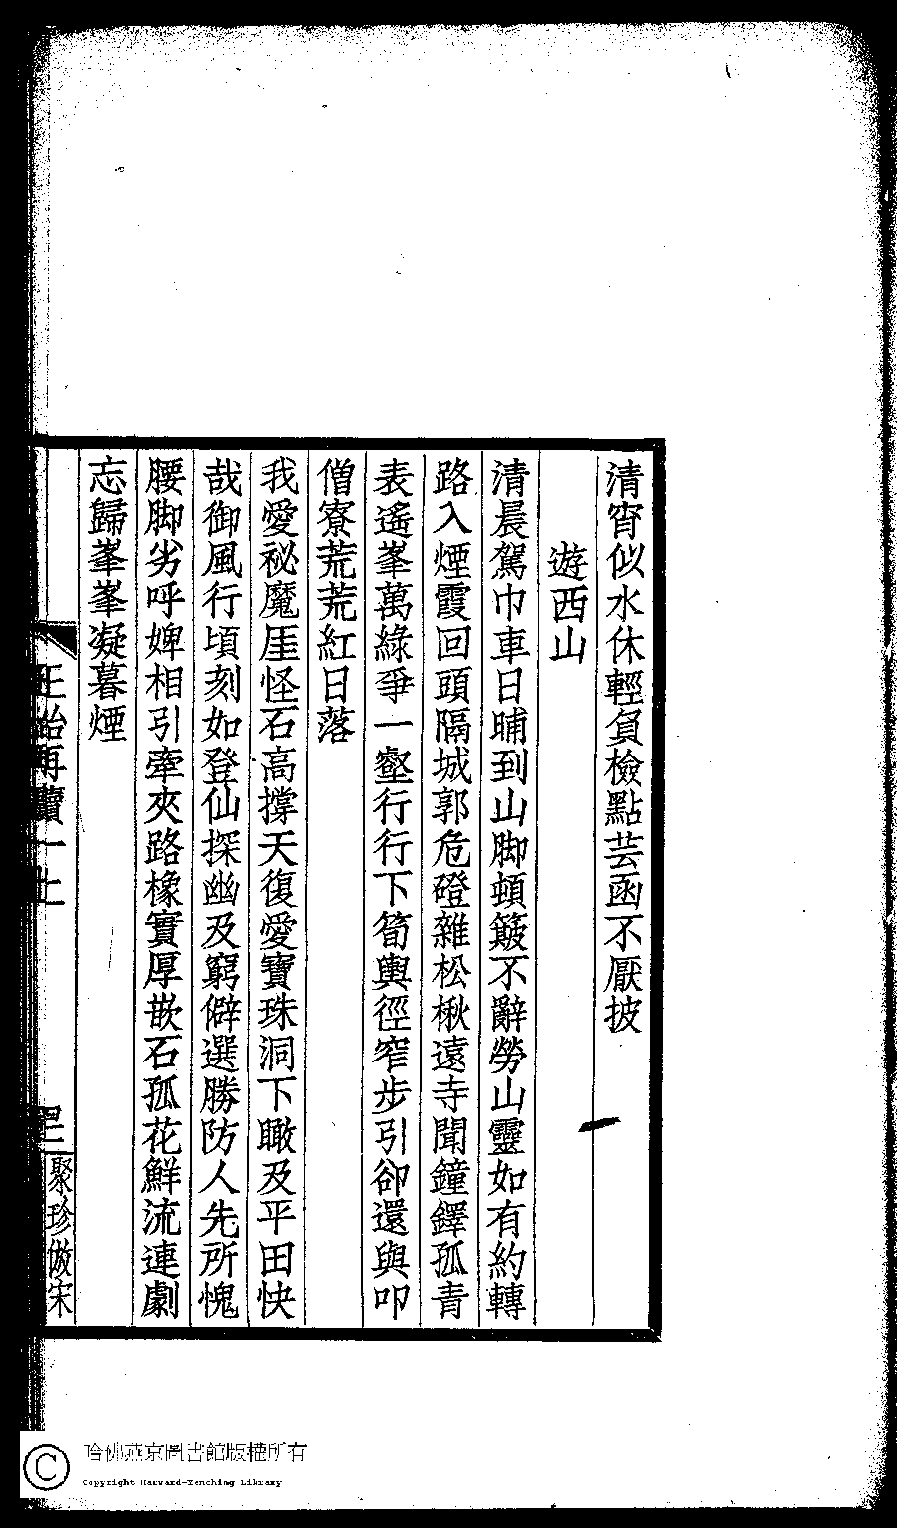 清宵似水休輕負檢點芸函不厭披
遊西山
清晨駕巾車日晡到山脚頓簸不辭勞山靈如有約轉
路入煙霞回頭隔城郭危磴雜松楸遠寺聞鐘鐸孤青
表遙峯萬綠爭一壑行行下筍輿徑窄步引卻還與叩
僧寮荒荒紅日落
我愛祕魔厓怪石高撐天復愛寶珠洞下瞰及平田快
哉御風行頃刻如登仙探幽及窮僻選勝防人先所愧
腰脚劣呼婢相引牽夾路橡實厚嵌石孤花鮮流連劇
忘歸峯峯凝暮煙
正始再續一上
聚珍倣宋
哈佛燕京圖書館版權所有
Copyright Harvard-Yenching Library